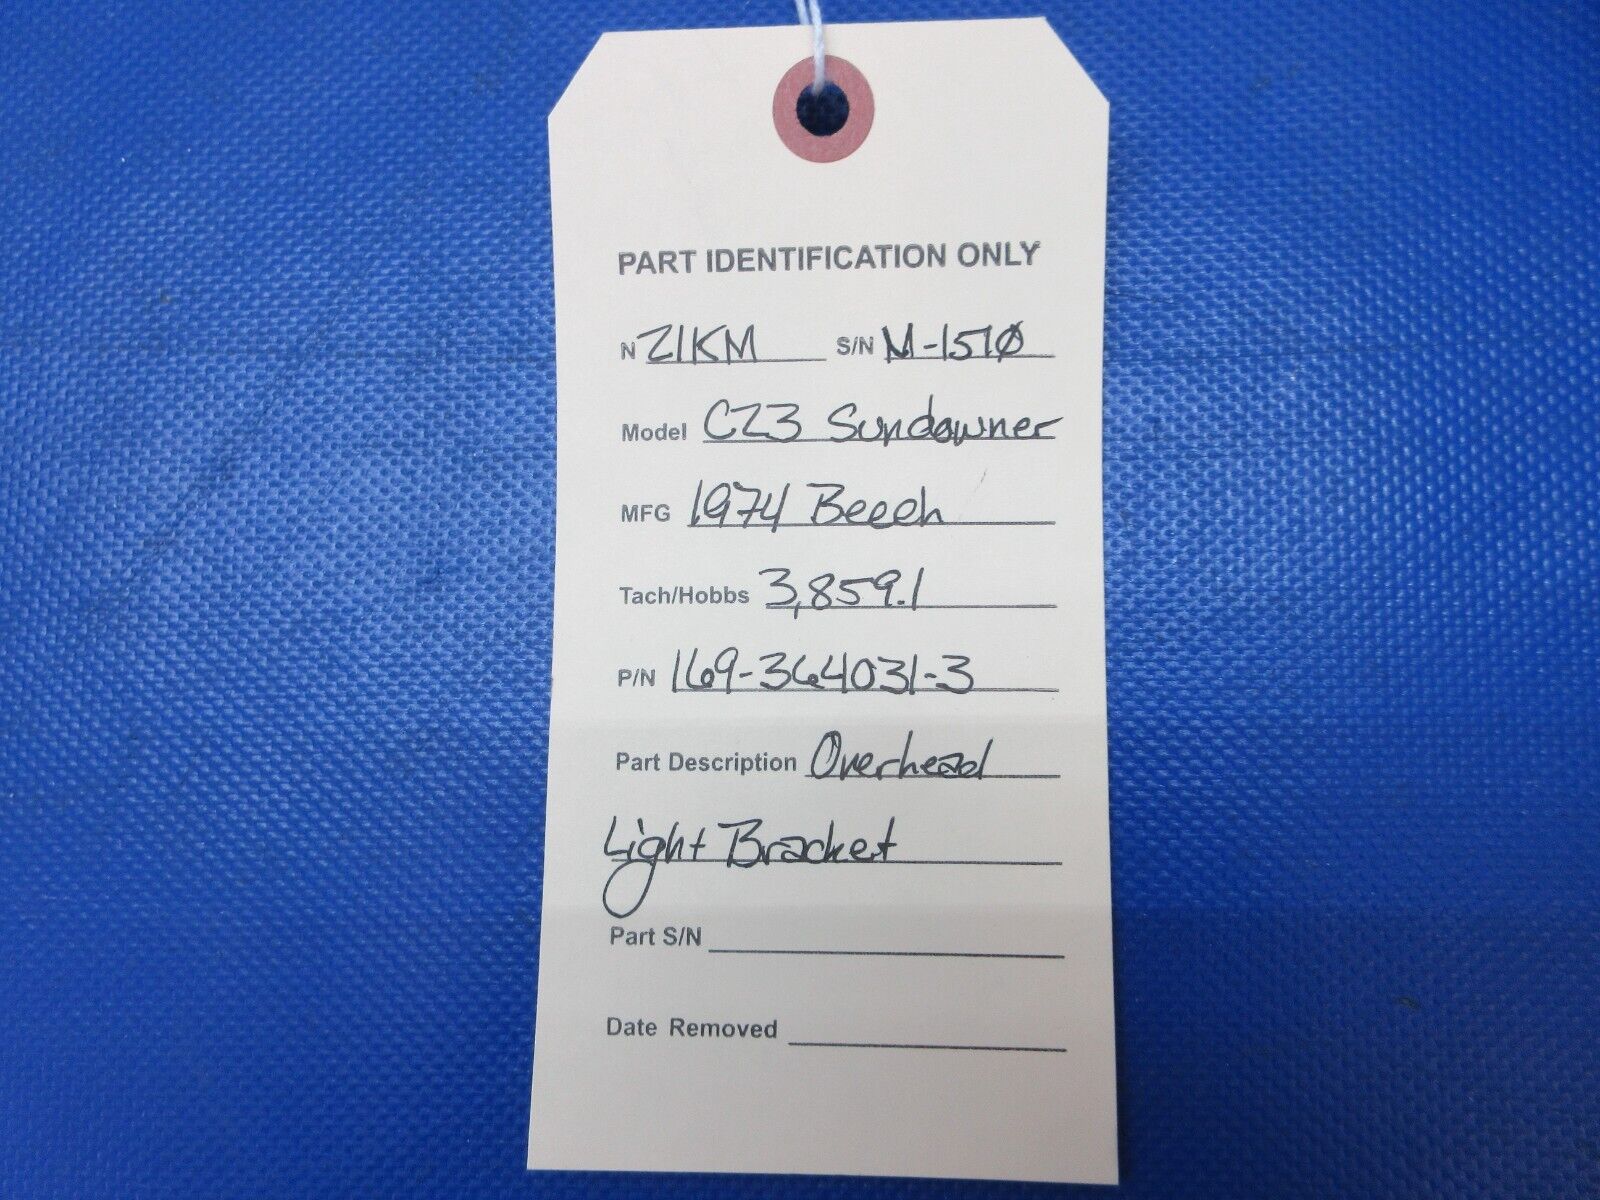 PART IDENTIFICATION ONLY
N 21KM S/N M-1570
Model C23 Sundowner
MFG 1974 Beech
Tach/Hobbs 3,859.1
P/N 169-364031-3
Part Description Overhead
Light Bracket
Part S/N
Date Removed